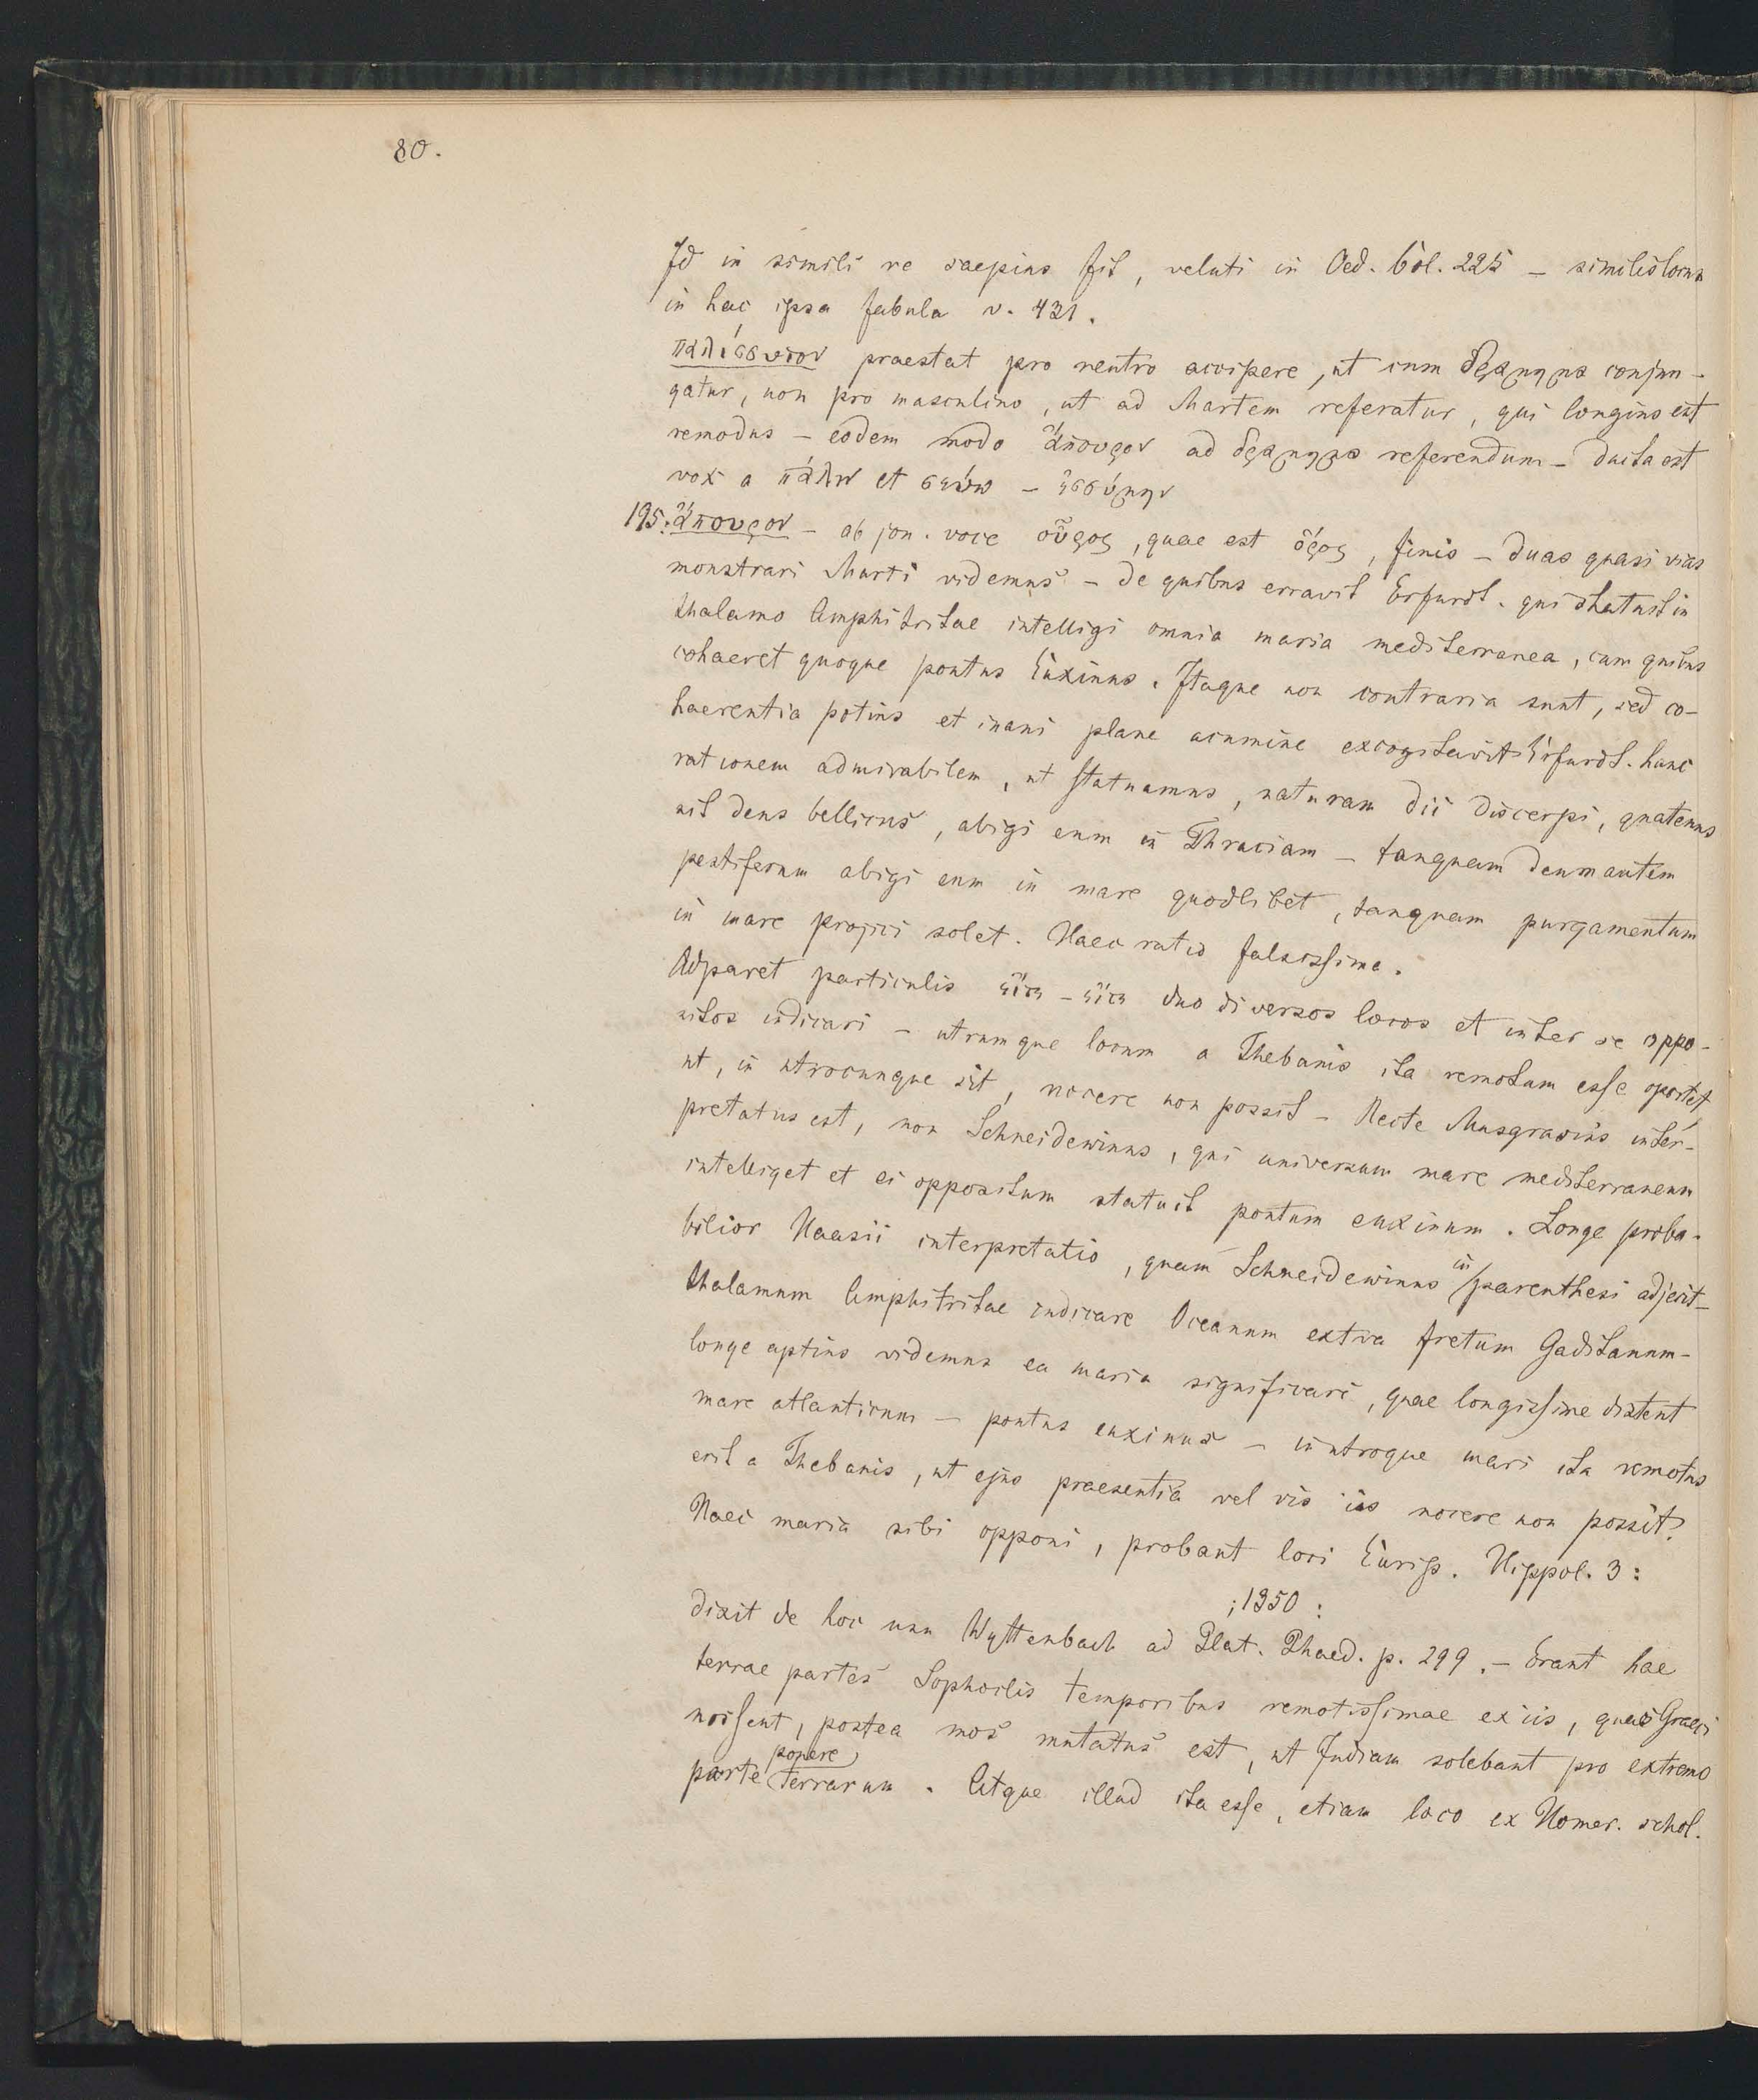 80.
Id in simili re saepius fit, veluti in Oed. Col. 225 – similis locus
in hac ipsa fabula v. 431.
παλίσσυτον praestat pro neutro accipere, ut cum δράμημα conjun-
gatur, non pro masculino, ut ad Martem referatur, qui longius est
remotus – eodem modo ἄπουρον ad δράμημα referendum – ducta est
vox a πάλιν et σεύω – ἐσσύμην
195. ἄπουρον – ab jon. voce οὖρος, quae est ὅρος, finis – duas quasi vias
monstrari Marti videmus – de quibus erravit Erfurdt. qui statuit in
thalamo Amphitritae intelligi omnia maria mediterranea, cum quibus
cohaeret quoque pontus Euxinus. Itaque non contraria sunt, sed co-
haerentia potius et inani plane acumine excogitavit Erfurdt. hanc
rationem admirabilem, ut statuamus, naturam dii discerpi, quatenus
sit deus bellicus, abigi eum in Thraciam – tanquam deum autem
pestiferum abigi eum in mare quodlibet, tanquam purgamentum
in mare projici solet. Haec ratio falsissima.
Adparet particulis εἴτε – εἴτε duo diversos locos et inter se oppo-
sitos indicari – utrumque locum a Thebanis ita remotum esse oportet
ut, in utrocunque sit, nocere non possit – Recte Musgravius inter-
pretatus est, non Schneidewinus, qui universum mare mediterraneum
intelliget et ei oppositum statuit pontum euxinum. Longe proba-
bilior Haasii interpretatio, quam Schneidewinus in parenthesi adjecit –
thalamum Amphitritae indicare Oceanum extra fretum Gaditanum –
longe aptius videmus ea maria significari, quae longissime distent
mare atlanticum – pontus euxinus – in utroque mari ita remotus
erit a Thebanis, ut ejus praesentia vel vis iis nocere non possit.
Haec maria sibi opponi, probant loci Eurip. Hippol. 3:
; 1350:
dixit de hoc usu Wyttenbach ad Plat. Phaed. p. 299. – Erant hae
terrae partes Sophoclis temporibus remotissimae ex iis, quas Graeci
nossent, postea mos mutatus est, ut Indiam solebant pro extremo
parte ponere terrarum. Atque illud ita esse, etiam loco ex Homer. schol.